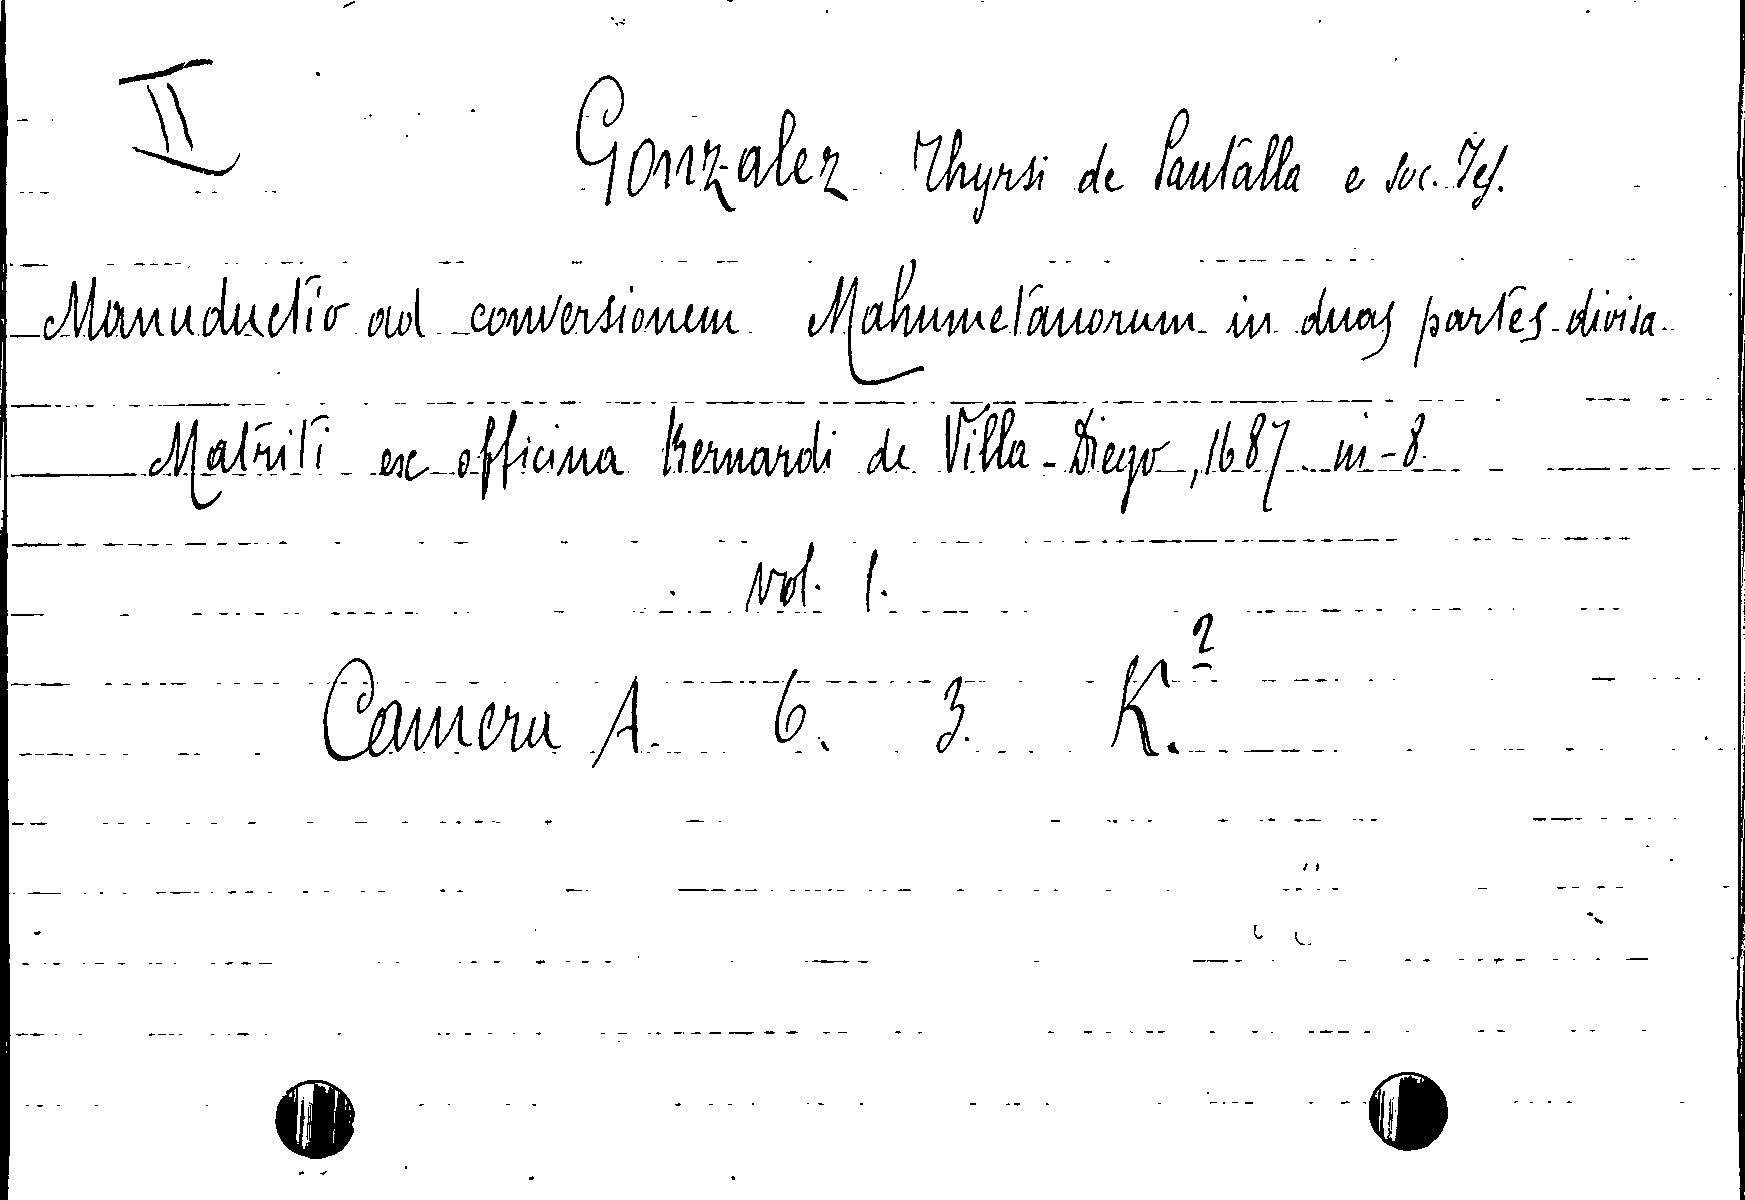 II
Gonzalez Thyrsi de Santalla e Soc. Jes.
Manuductio ad conversionem Mahumetanorum in duas partes divisa
Matriti ex officina Bernardi de Villa-Diego, 1687 in-8
vol. 1.
Camera A. 6. 3. K.2